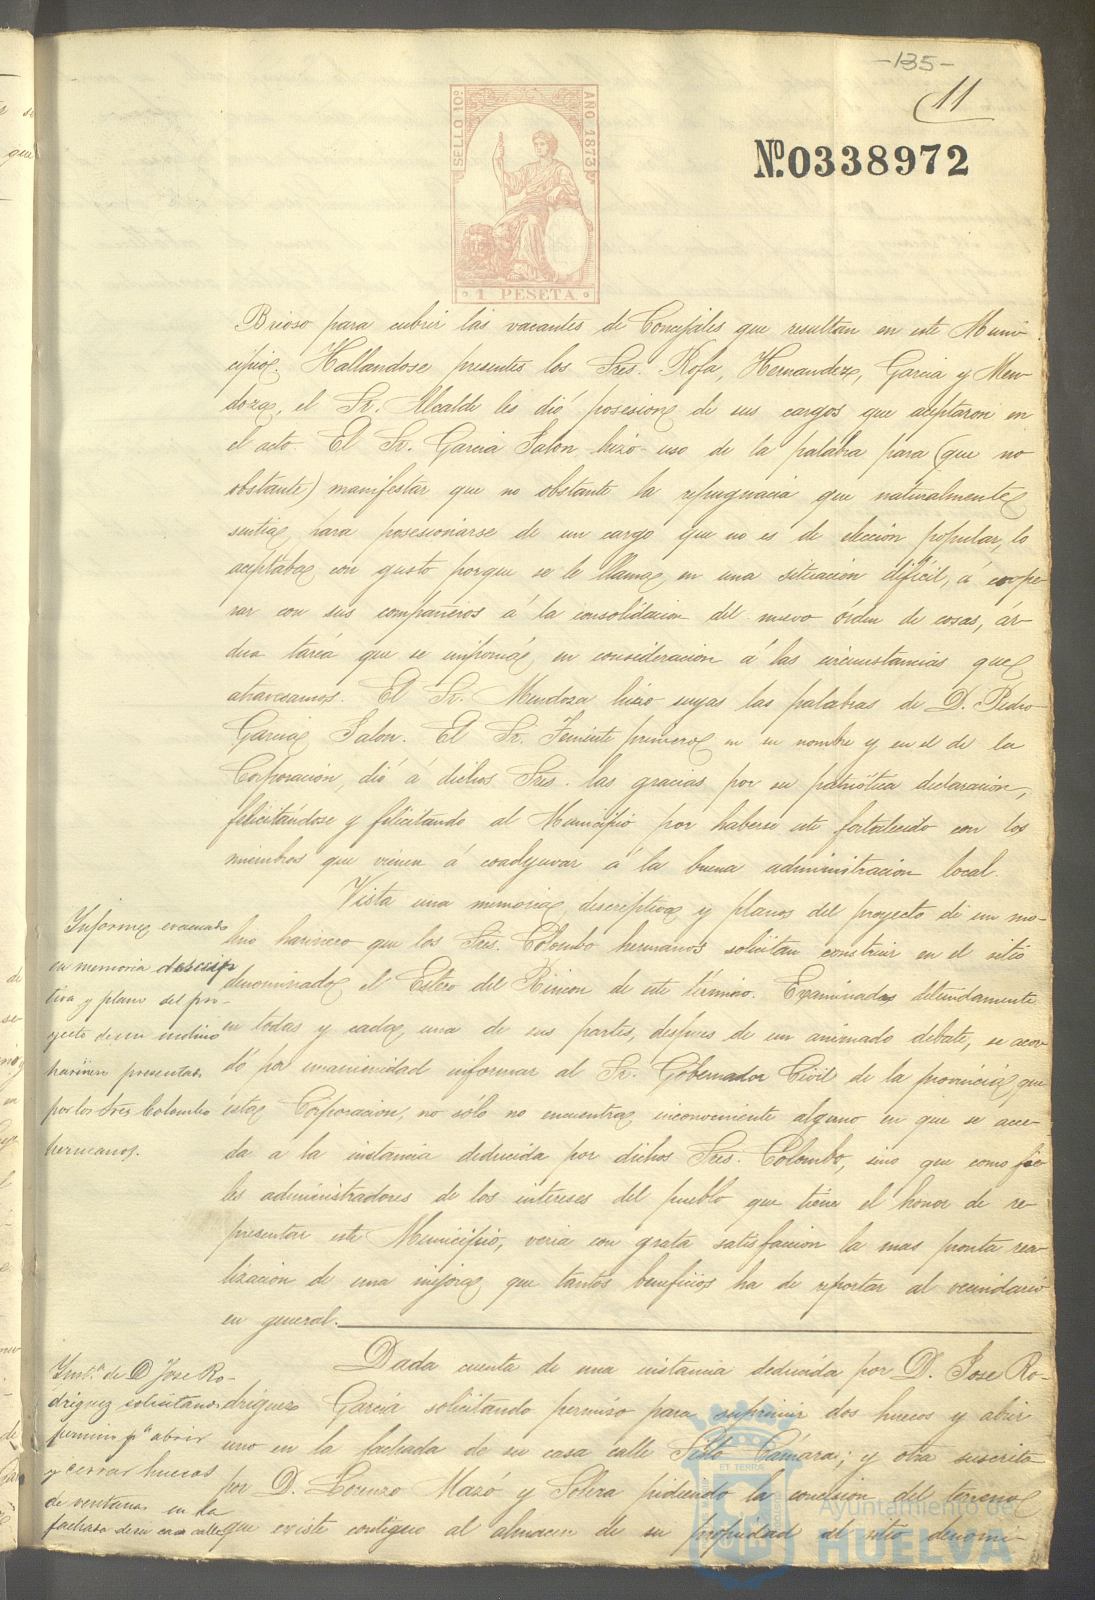 -135-
11
SELLO 10º
AÑO 1873
Nº 0338972
1 PESETA
Brioso para cubrir las vacantes de Concejales que resultan en este Muni-
cipio. Hallandose presentes los Sres. Rofa, Hernandez, Garcia y Men-
doza, el Sr. Alcalde les dió posesion de sus cargos que aceptaron en
el acto. El Sr. Garcia Jalon hizo uso de la palabra para (que no
obstante) manifestar que no obstante la repugnacia que naturalmente
sentia para posesionarse de un cargo que no es de eleccion popular, lo
aceptaba con gusto porque se le llama en una situacion dificil, á coope-
rar con sus compañeros á la consolidacion del nuevo órden de cosas, ár-
dua taréa que se imponía, en consideracion á las circunstancias que
atravesamos. El Sr. Mendoza hizo suyas las palabras de D. Pedro
Garcia Jalon. El Sr. Teniente primero en su nombre y en el de la
Corporacion, dió á dichos Sres. las gracias por su patriótica declaracion,
felicitándose y felicitando al Municipio por haberse este fortalecido con los
miembros que vienen á coadyuvar á la buena administracion local.
Informe evacuado
en memoria descrip
tiva y plano del pro-
yecto de un molino
harinero presentas
por los Sres Colombo
hermanos.
Vista una memoria descriptiva y planos del proyecto de un mo-
lino harinero que los Sres. Colombo hermanos solicitan construir en el sitio
denominado el Estero del Rincon de este término. Examinadas detendamente
en todas y cada una de sus partes, despues de un animado debate, se acor-
dó por unanimidad informar al Sr. Gobernador Civil de la provincia que
ésta Corporacion, no sólo no encuentra inconveniente alguno en que se acce-
da a la instancia deducida por dichos Sres. Colombo, sino que como fie-
les administradores de los intereses del pueblo que tiene el honor de re-
presentar este Municipio, veria con grata satisfaccion la mas pronta rea-
lizacion de una mejora que tantos beneficios ha de reportar al vecindario
en general.
Inst.ª de D Jose Ro-
driguez solicitano
permiso pª abrir
y cerrar huecos
de ventanas en la
fachada de su casa calle
Dada cuenta de una instancia deducida por D. Jose Ro-
driguez Garcia solicitando permiso para suprimir dos huecos y abrir
uno en la fachada de su casa calle Tello Cámara; y otra suscrita
por D. Lorenzo Mazó y Solera pidiendo la concesion del terreno
que existe contiguo al almacen de su propiedad al sitio denomi-
ET TERRA
Ayuntamiento de
HUELVA